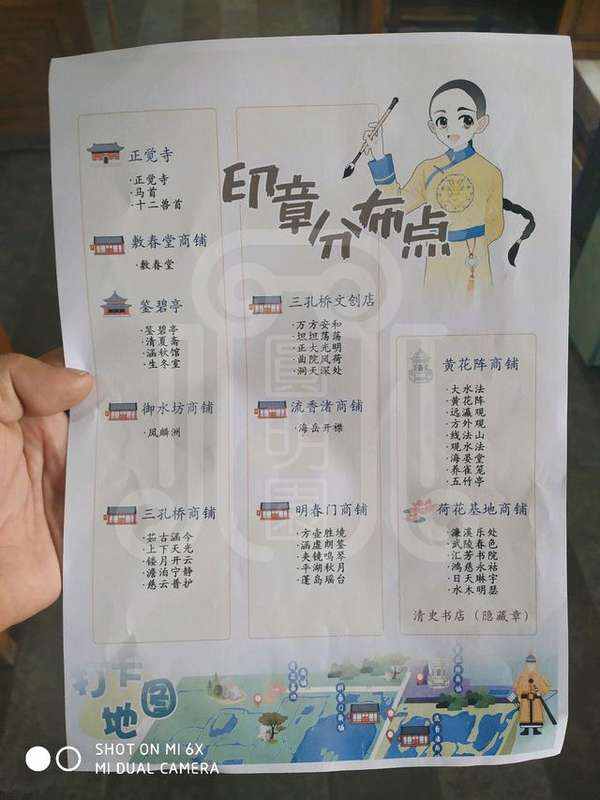 印章分布点
正觉寺
·正觉寺
·马首
·十二兽首
敷春堂商铺
·敷春堂
鉴碧亭
·鉴碧亭
·清夏斋
·涵秋馆
·生冬室
御水坊商铺
·凤麟洲
三孔桥商铺
·茹古涵今
·上下天光
·镂月开云
·澹泊宁静
·慈云普护
三孔桥文创店
·万方安和
·坦坦荡荡
·正大光明
·曲院风荷
·洞天深处
流香渚商铺
·海岳开襟
明春门商铺
·方壶胜境
·涵虚朗鉴
·夹镜鸣琴
·平湖秋月
·蓬岛瑶台
黄花阵商铺
·大水法
·黄花阵
·远瀛观
·方外观
·线法山
·观水法
·海晏堂
·养雀笼
·五竹亭
荷花基地商铺
·濂溪乐处
·武陵春色
·汇芳书院
·鸿慈永祜
·日天琳宇
·水木明瑟
清史书店（隐藏章）
圆明园
打卡
地图
SHOT ON MI 6X
MI DUAL CAMERA